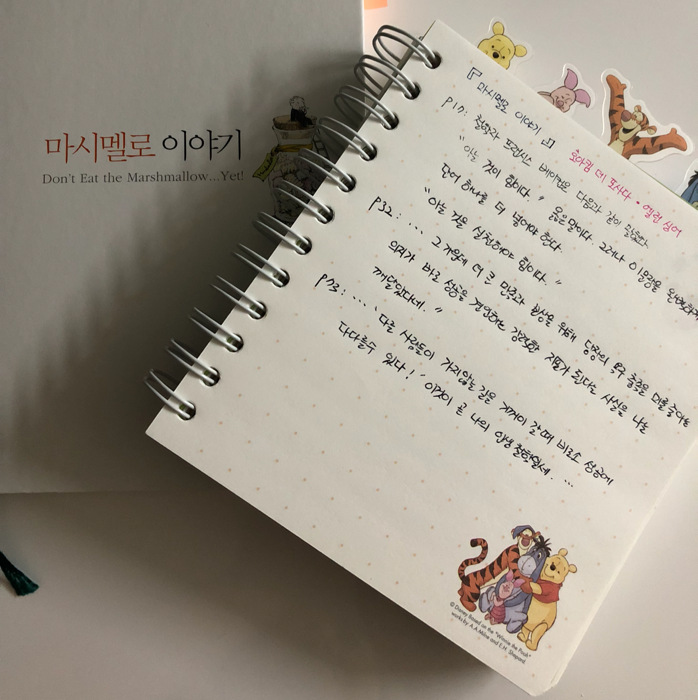 마시멜로 이야기
Don't Eat the Marshmallow...Yet!
『마시멜로 이야기』
호아킴 데 포사다 · 엘런 싱어
P17: 철학자 프랜시스 베이컨은 다음과 같이 말했다.
"아는 것이 힘이다." 옳은 말이다. 그러나 이 문장을 완벽하게
단어 하나를 더 넣어야 한다
"아는 것을 실천해야 힘이다."
P32: ... 그 가운데 더 큰 만족과 보상을 위해 당장의 욕구 충족을 미룰 줄 아는
의지가 바로 성공을 견인하는 강력한 지표가 된다는 사실을 나는
깨달았다네."
P73: ... '다른 사람들이 가지않는 길을 기꺼이 갈 때 비로소 성공에
다다를수 있다!' 이것이 곧 나의 인생 철학일세. ...
© Disney Based on the "Winnie the Pooh"
works by A.A.Milne and E.H. Shepard